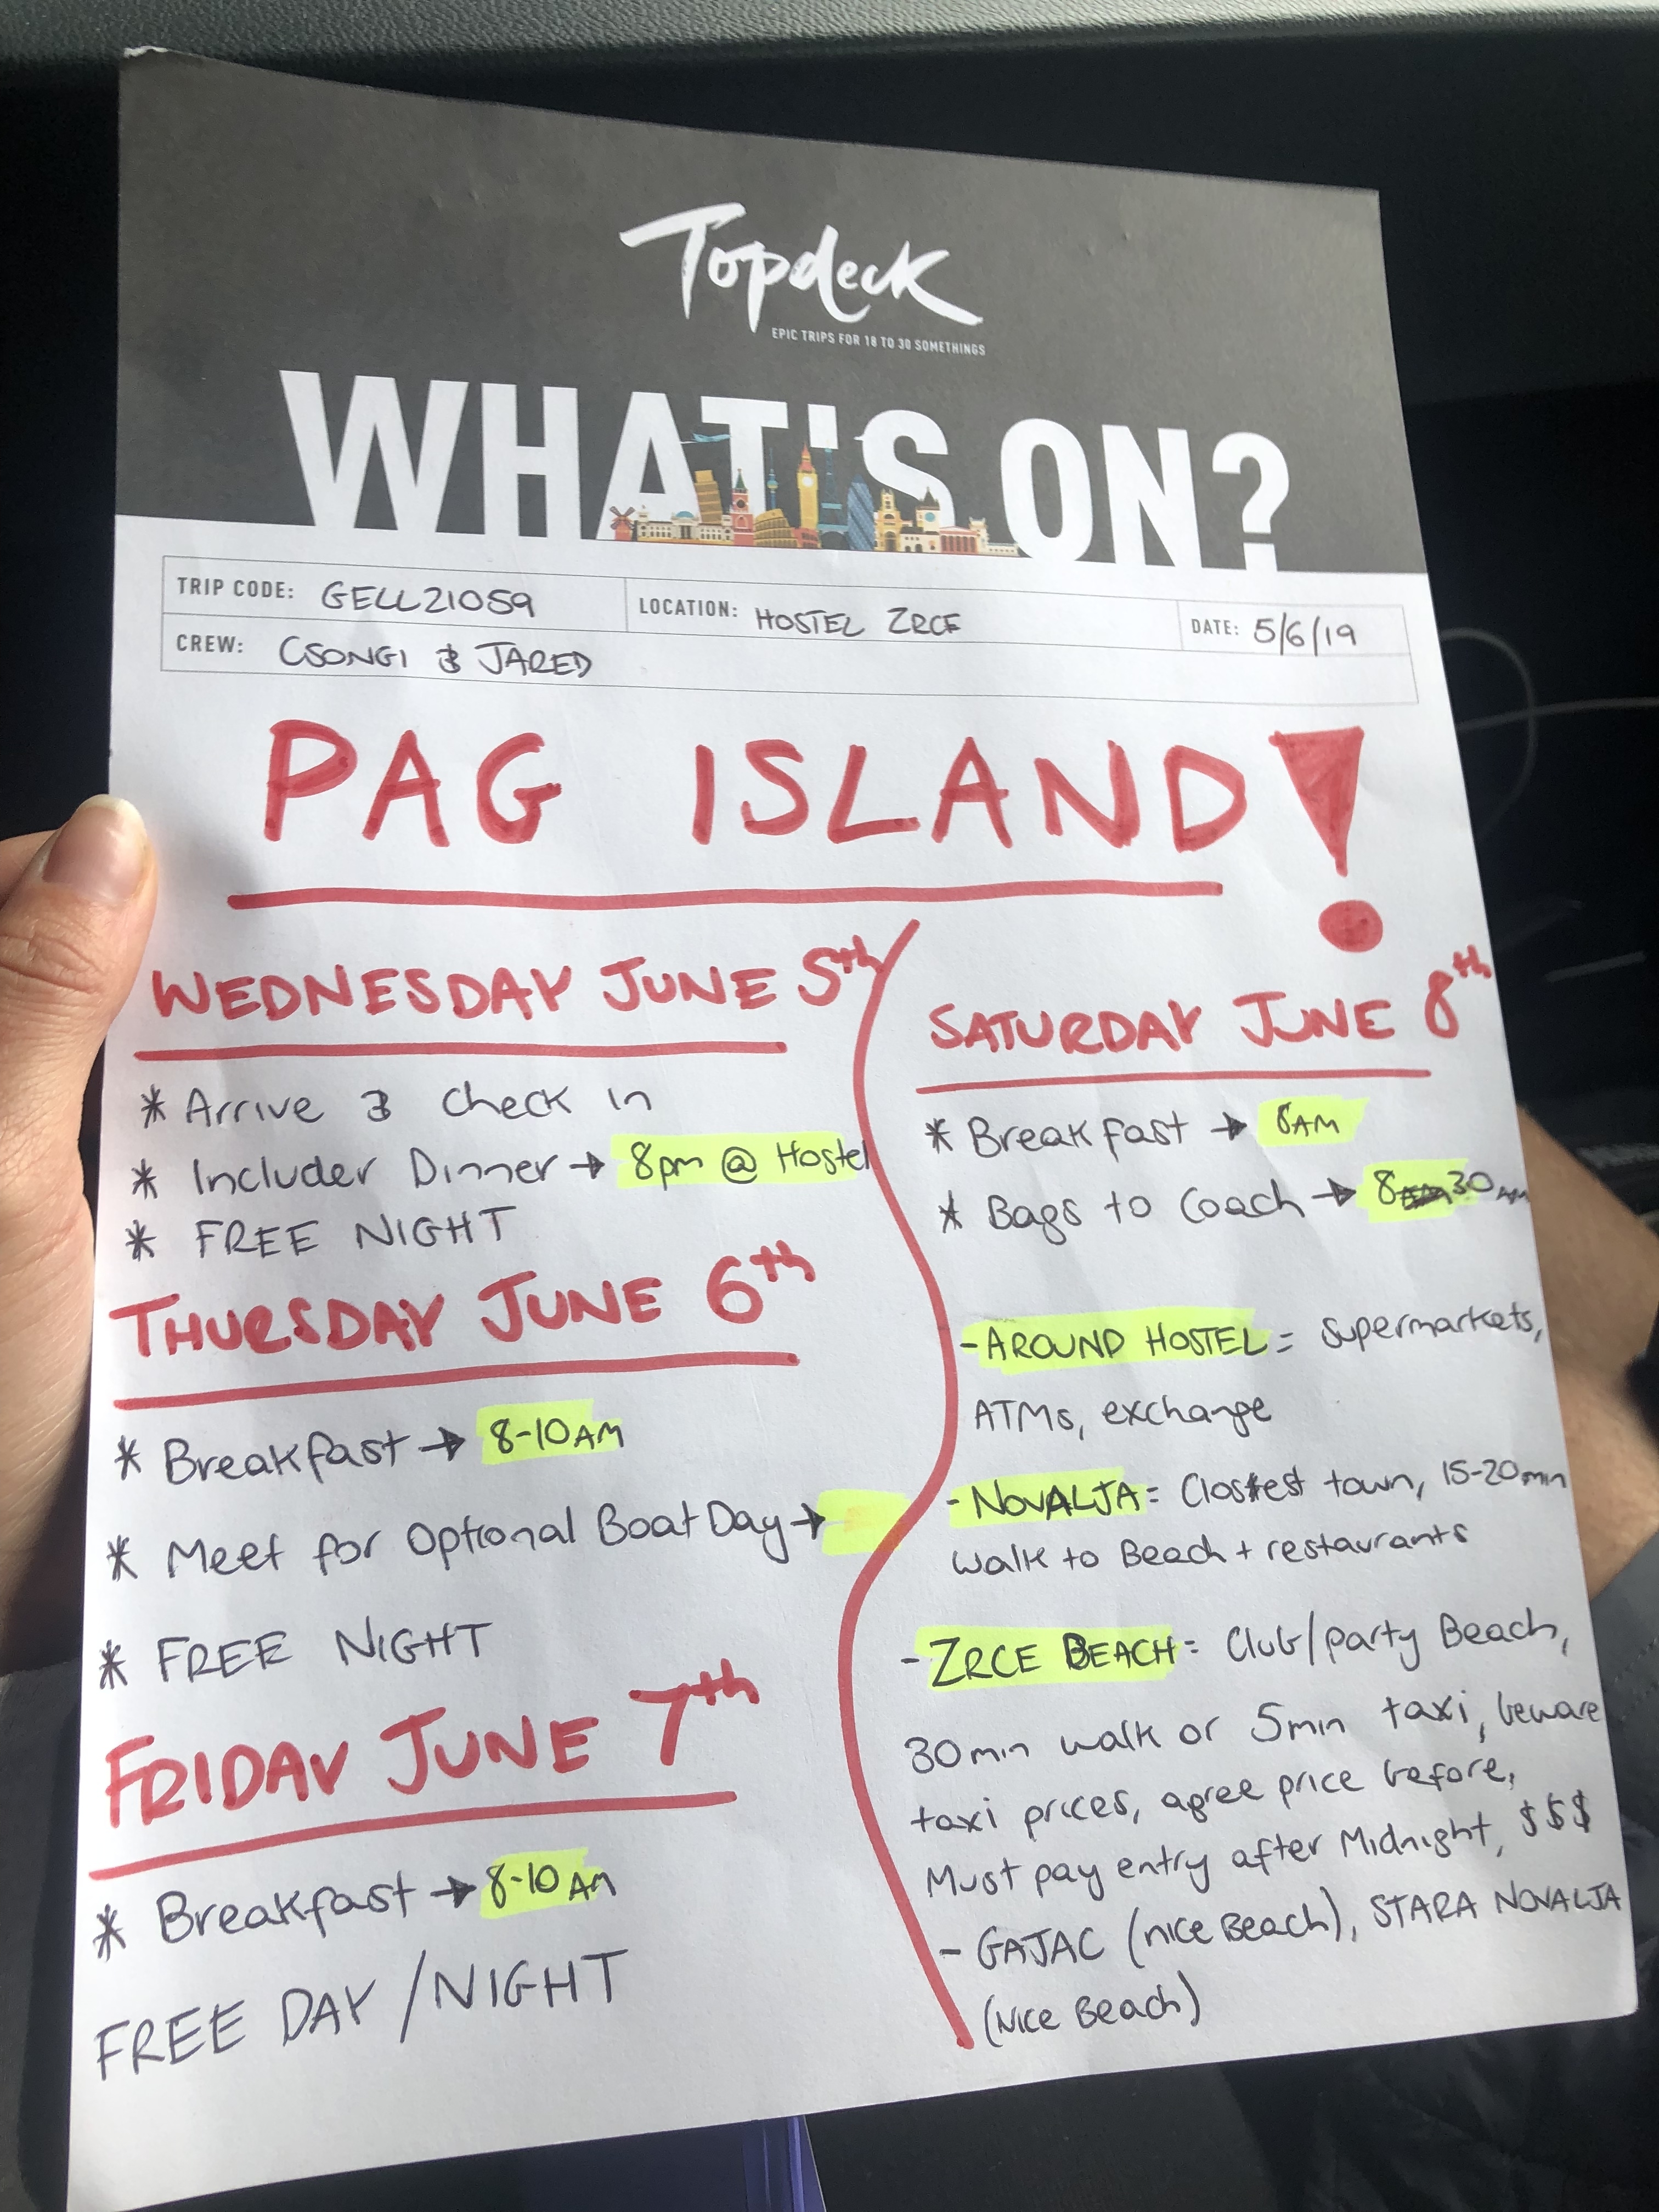 Topdeck
EPIC TRIPS FOR 18 TO 30 SOMETHINGS
WHAT'S ON?
TRIP CODE: GELL21059
LOCATION: HOSTEL ZRCE
DATE: 5/6/19
CREW: CSONGI & JARED
PAG ISLAND!
WEDNESDAY JUNE 5th
* Arrive & Check in
* Includer Dinner → 8pm @ Hostel
* FREE NIGHT
THURSDAY JUNE 6th
* Breakfast → 8-10AM
* Meet for Optional Boat Day →
* FREE NIGHT
FRIDAY JUNE 7th
* Breakfast → 8-10AM
FREE DAY/NIGHT
SATURDAY JUNE 8th
* Breakfast → 8AM
* Bags to Coach → 8 30AM
- AROUND HOSTEL = Supermarkets,
ATMs, exchange
- NOVALJA = Closest town, 15-20min
walk to Beach + restaurants
- ZRCE BEACH = Club/party Beach,
30min walk or 5min taxi, beware
taxi prices, agree price before,
Must pay entry after Midnight, $$$
- GAJAC (nice Beach), STARA NOVALJA
(nice Beach)